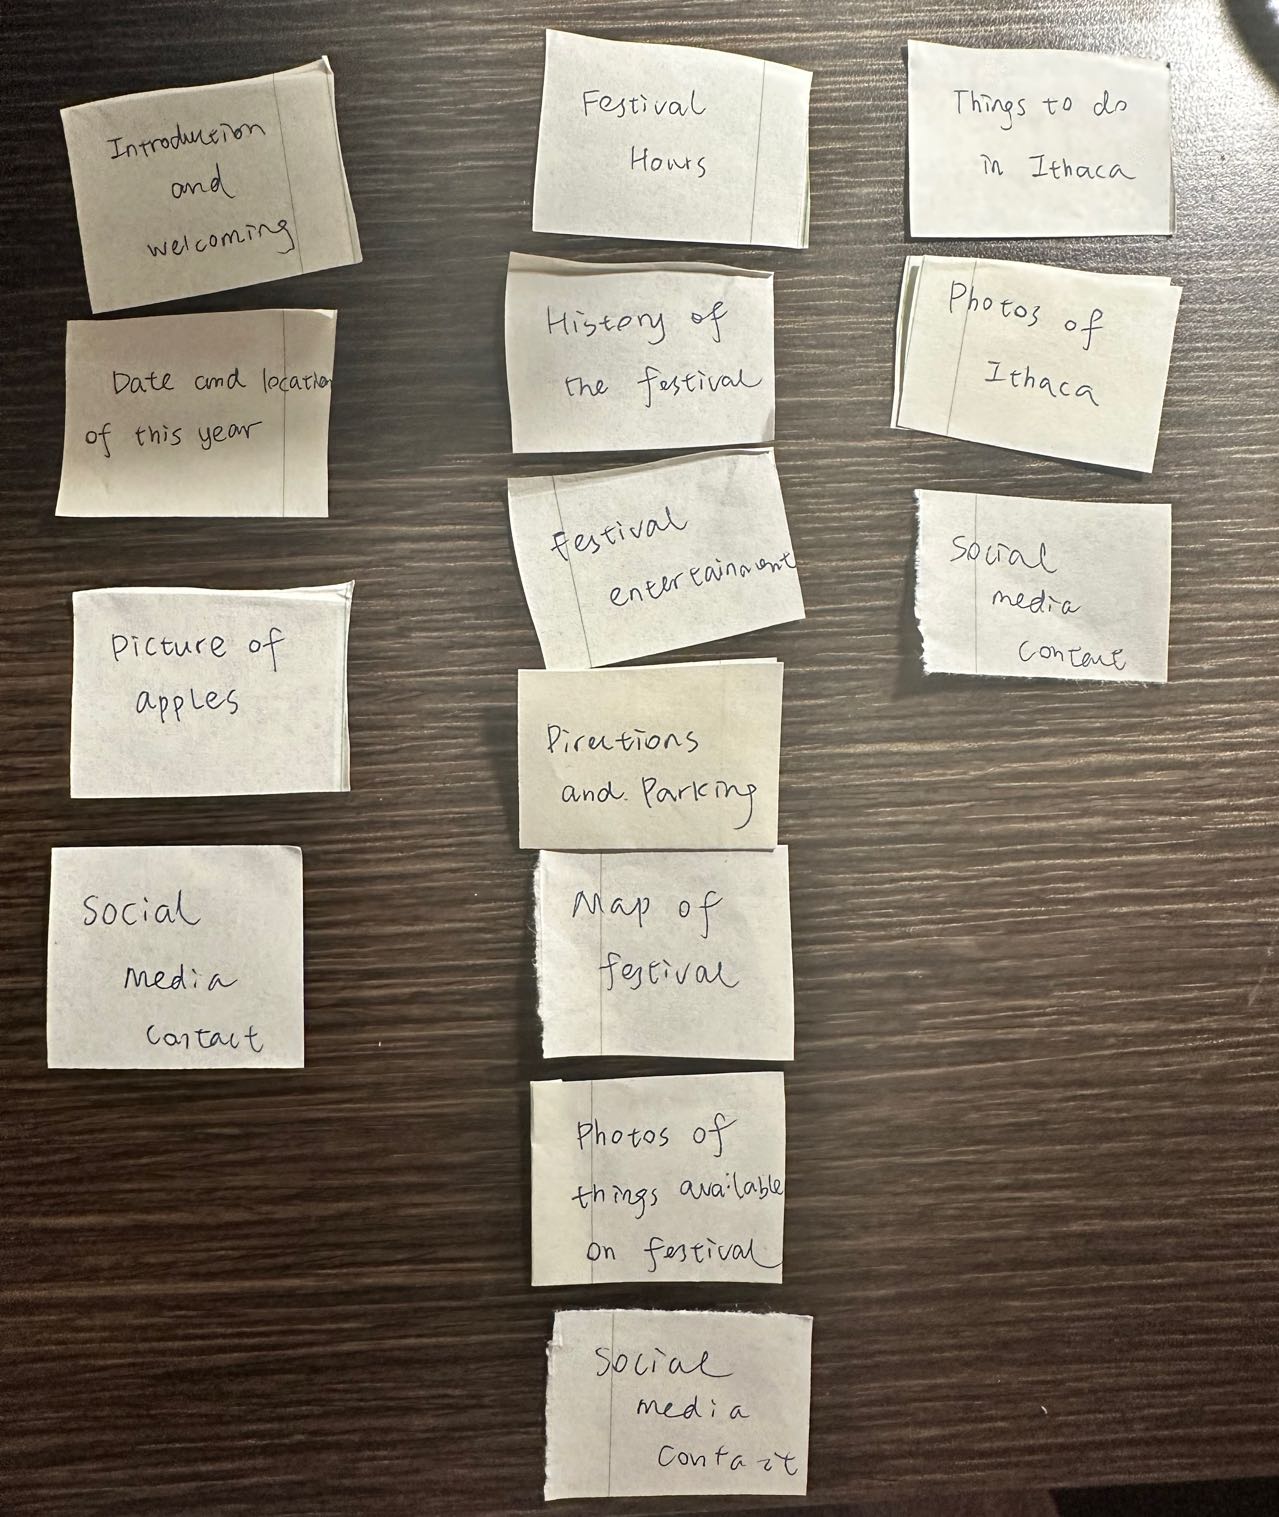 Introduction
and
welcoming
Date and location
of this year
Picture of
apples
Social
Media
Contact
Festival
Hours
History of
the festival
Festival
entertainment
Directions
and Parking
Map of
festival
Photos of
things available
on festival
Social
media
Contact
Things to do
in Ithaca
Photos of
Ithaca
Social
media
Contact